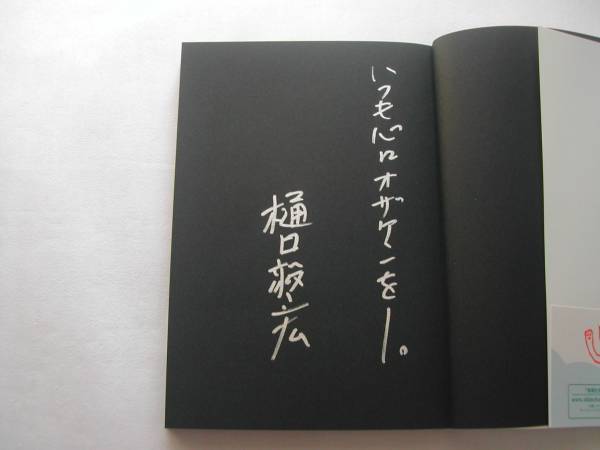 いつも心にオザケンを!
樋口毅宏